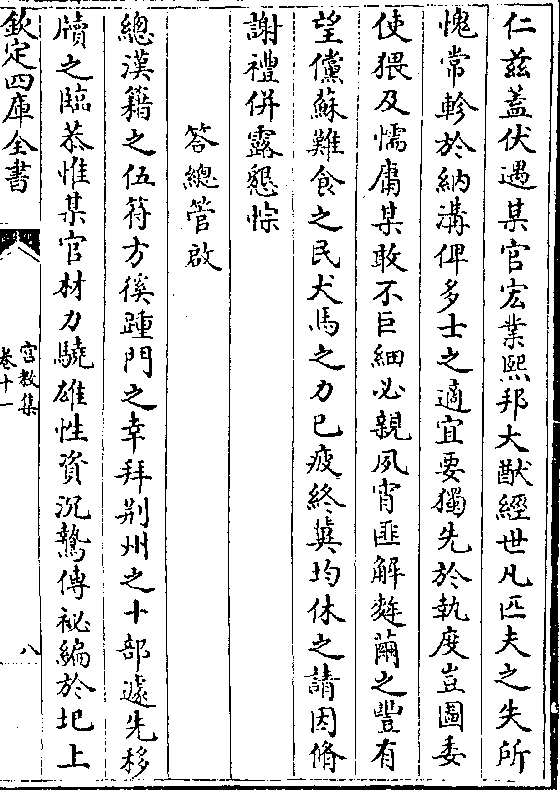 仁兹蓋伏遇某官宏業熙邦大猷經世凡匹夫之失所
愧常軫於納溝俾多士之適宜要獨先於執度豈圖委
使猥及懦庸某敢不巨細必親夙宵匪解麰繭之豐有
望儻蘇難食之民犬馬之力已疲終冀均休之請因脩
謝禮併露懇悰
答總管啟
總漢籍之伍符方徯踵門之幸拜荆州之十部遽先移
牘之臨恭惟某官材力驍雄性資沉鷙傳祕編於圯上
欽定四庫全書
宮教集
卷十一
八